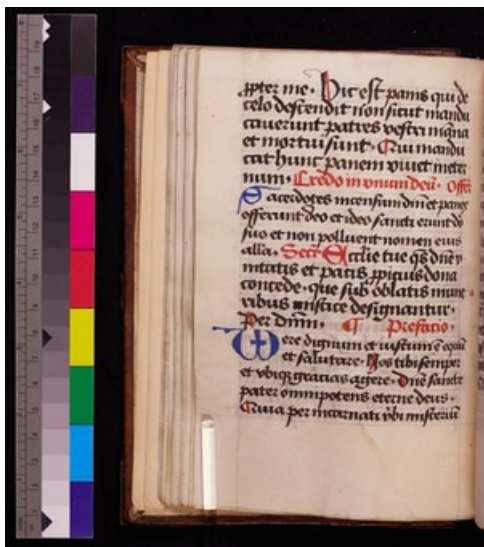 ppter me. Hic est panis qui de
celo descendit non sicut mandu
cauerunt patres vestri māna
et mortui sunt. Qui mandu
cat hunc panem viuet in eter
num. Credo in vnum deū. Offe
Sacerdotes incensum dn̄i et panes
offerunt deo et ideo sancti erunt dō
suo et non polluent nomen eius
alla. Secr̄ Ecclīe tue qs dn̄e v
nitatis et pacis ppicius dona
concede. que sub oblatis mune
ribus mistice designantur.
Per dn̄m. Prefacio.
Vere dignum et iustum ē equū
et salutare. Nos tibi semper
et vbiqȝ gracias agere. Dn̄e sancte
pater omnipotens eterne deus.
Quia per incarnati vbi misteriū